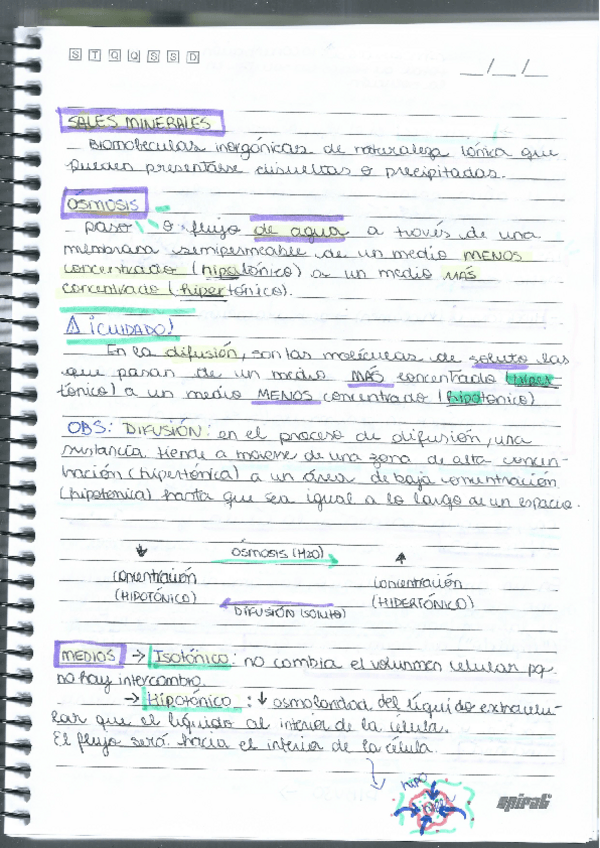 S T Q Q S S D
__/__/__
SALES MINERALES
Biomoleculas inorgánicas de naturaleza iónica que
pueden presentarse disueltas o precipitadas.
ÓSMOSIS
paso o flujo de agua a través de una
membrana semipermeable de un medio MENOS
concentrado (hipotónico) a un medio MÁS
concentrado (hipertónico).
⚠ ¡CUIDADO!
En la difusión, son las moléculas de soluto las
que pasan de un medio MÁS concentrado (hiper
tónico) a un medio MENOS concentrado (hipotonico)
OBS: DIFUSIÓN: en el proceso de difusión, una
sustancia tiende a moverse de una zona de alta concen-
tración (hipertónica) a un área de baja concentración
(hipotonica) hasta que sea igual a lo largo de un espacio.
↓ ÓSMOSIS (H2O) ↑
concentración concentración
(HIPOTÓNICO) (HIPERTÓNICO)
DIFUSIÓN (SOLUTO)
MEDIOS → Isotónico: no cambia el volunmen celular pq
no hay intercambio.
→ Hipotónico: ↓ osmolaridad del líquido extracelu-
lar que el líquido al interior de la célula.
El flujo será hacia el interior de la célula.
hipo
hiper
spiral